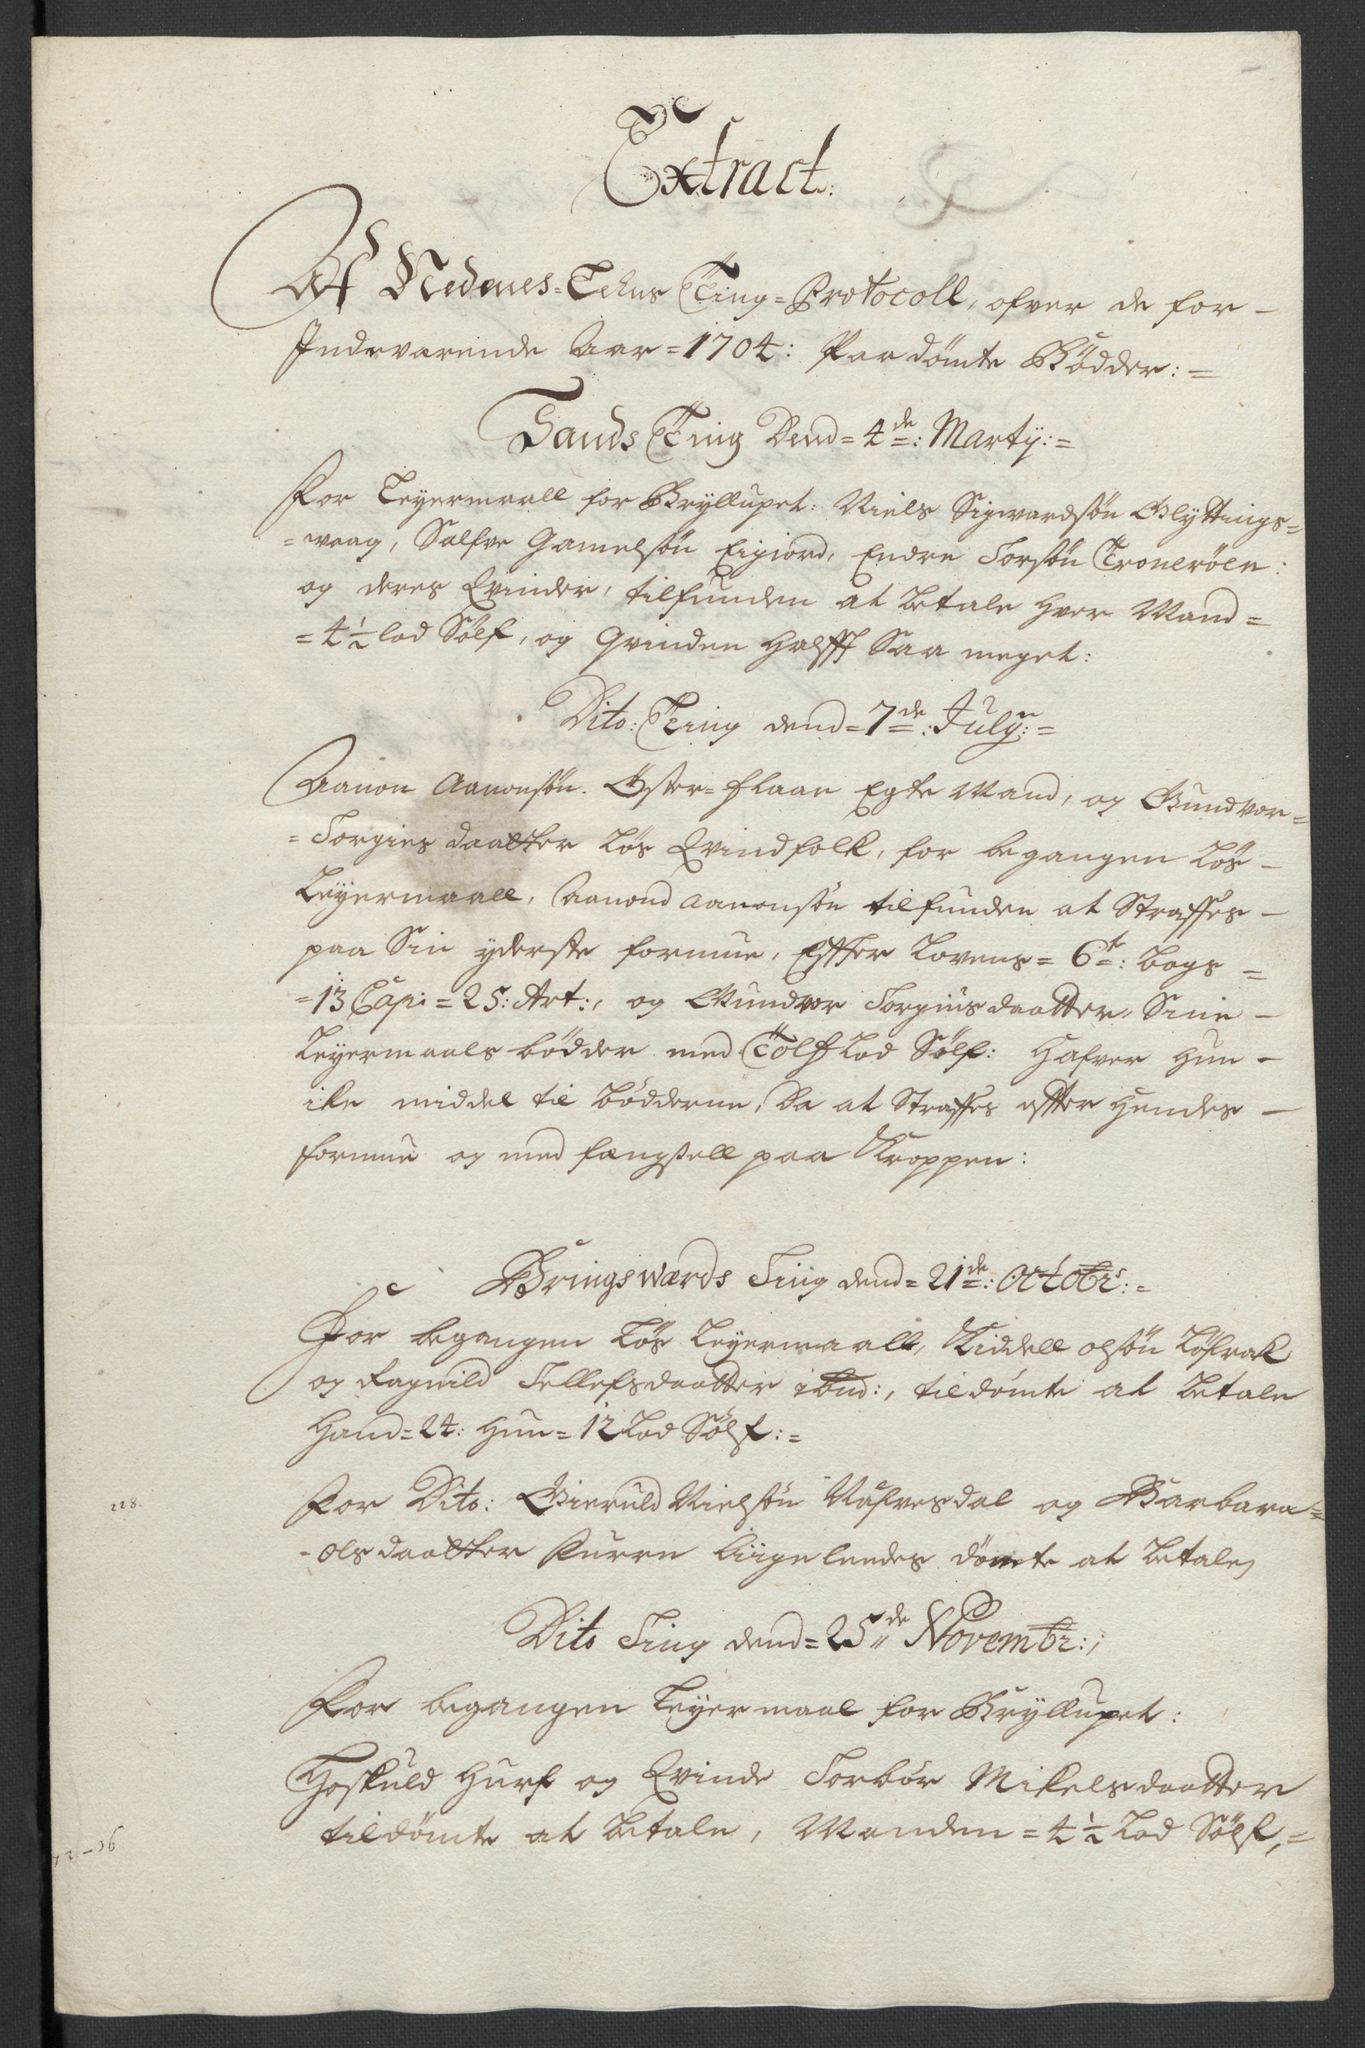 Extract:
Af Nedenes=Lehns Ting=Protocoll, ofver de for -
Indeværende Aar=1704: Paadømte Bødder:=
Sands Ting Dend=4de: Marty:=
For Leyermaall for Brÿllupet: Niels Sigvardsøn Glÿttings=
=waag, Salfve Gamelsøn Eigiord, Endre Torsøn Tronerøen:
og deres Qvinder, tilfunden at betale hver Mand=
=4½ lod Sølf, og Qvinden Halfft Saa meget:
Dito: Ting dend=7de: July:=
Aanon Aanonsøn Øster=flaan Egte Mand, og Gundvor=
=Torgiesdaatter løs Qvindfolk, for begangen løs -
Leÿermaall, Aanond Aanonsøn tilfunden at Straffes -
paa Sin ÿderste formue, Effter Lovens=6te: bogs=
=13 Capi=25: Art:, og Gundvor Torgiusdaatter, Sine -
Leÿermaals bødder med Tolf Lod Sølf: Hafver Hun -
icke middel til bødderne, Da at Straffes effter Hendes -
formue og med fængsell paa Kroppen:
Bringsværds Ting dend=21de: Octobr:=
For begangen løs Leÿermaall, Kiddell olsøn Løfrak
og Ragnild Tellefsdaatter ibid:, tildømte at betale
Hand=24: Hun=12 Lod Sølf:=
For Dito: Gieruld Nielsøn Ναfvesdal og Barbara=
-olsdaatter Furre liigeleedes dømte at betale,
Dito Ting dend=25de Novembr:,
For begangen Leÿermaal for Brÿllupet:
Hoskuld Hurf og Qvinde Torbør Mikelsdaatter
tildømte at betale, Manden=4½ Lod Sølf,=